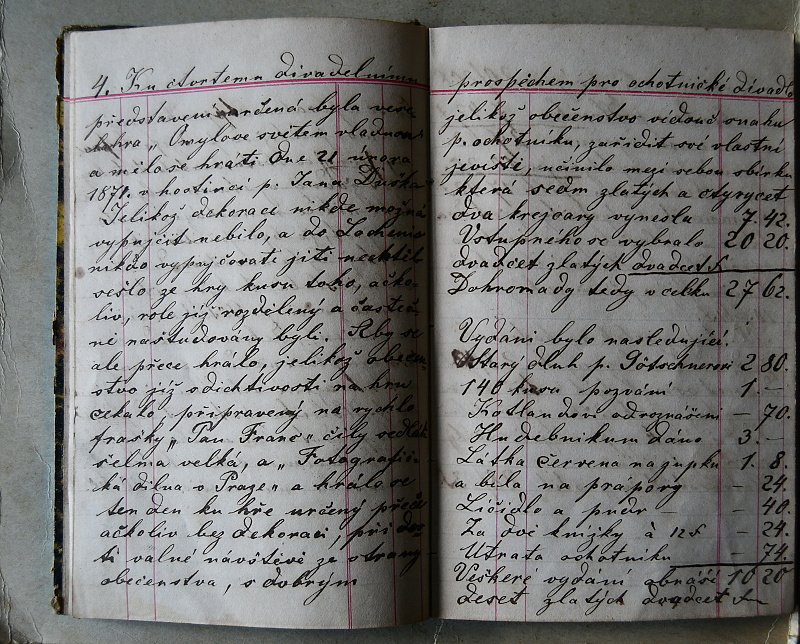 4. Ku čtvrtemu divadelnímu
představení určená byla vese
lohra „Omylové světem vladnou
a mělo se hráti dne 21 února
1871. v hostinci p. Jana Duška
Jelikož dekorací nikde možná
vypujčit nebilo, a do Lochenic
nikdo vypujčovati jíti nechtěl
sešlo ze hry kusu toho, ačko-
liv, role již rozdělený a částeč
ně naštudovány byli. Aby se
ale přece hrálo, jelikož obecen
stvo již s dichtivostí na hru
čekalo, připraveny na rychlo
frašky „Pan Franc" čily sedlák
šelma velká, a „Fotografic-
ká dílna v Praze" a hrálo se
ten den ku hře určený přeče
ačkoliv bez dekorací, při dos
ti valné návštěvě ze strany
obecenstva, s dobrým
prospěchem pro ochotnické divadlo
jelikož obecenstvo vidouc snahu
p. ochotníku, zařídit své vlastní
jeviště, učinilo mezi sebou sbírku
která sedm zlatých a čtyrycet
dva krejcary vynesla 7 42.
Vstupného se vybralo 20 20.
dvadcet zlatých dvadcet
Dohromady tedy v celku 27 62.
Vydání bylo nasledující.
Starý dluh p. Götschnerovi 2 80.
140 kusu pozvání 1. –
Katlandovi od roznášení – 70.
Hudebníkum dáno 3. –
Látka červena na jupku 1. 8.
a bíla na prapory – 24.
Ličidlo a pudr – – 40.
Za dvě knížky à 12 – 24.
Utrata ochotníku – 74.
Veškeré vydání obnáší 10 20
deset zlatých dvadcet